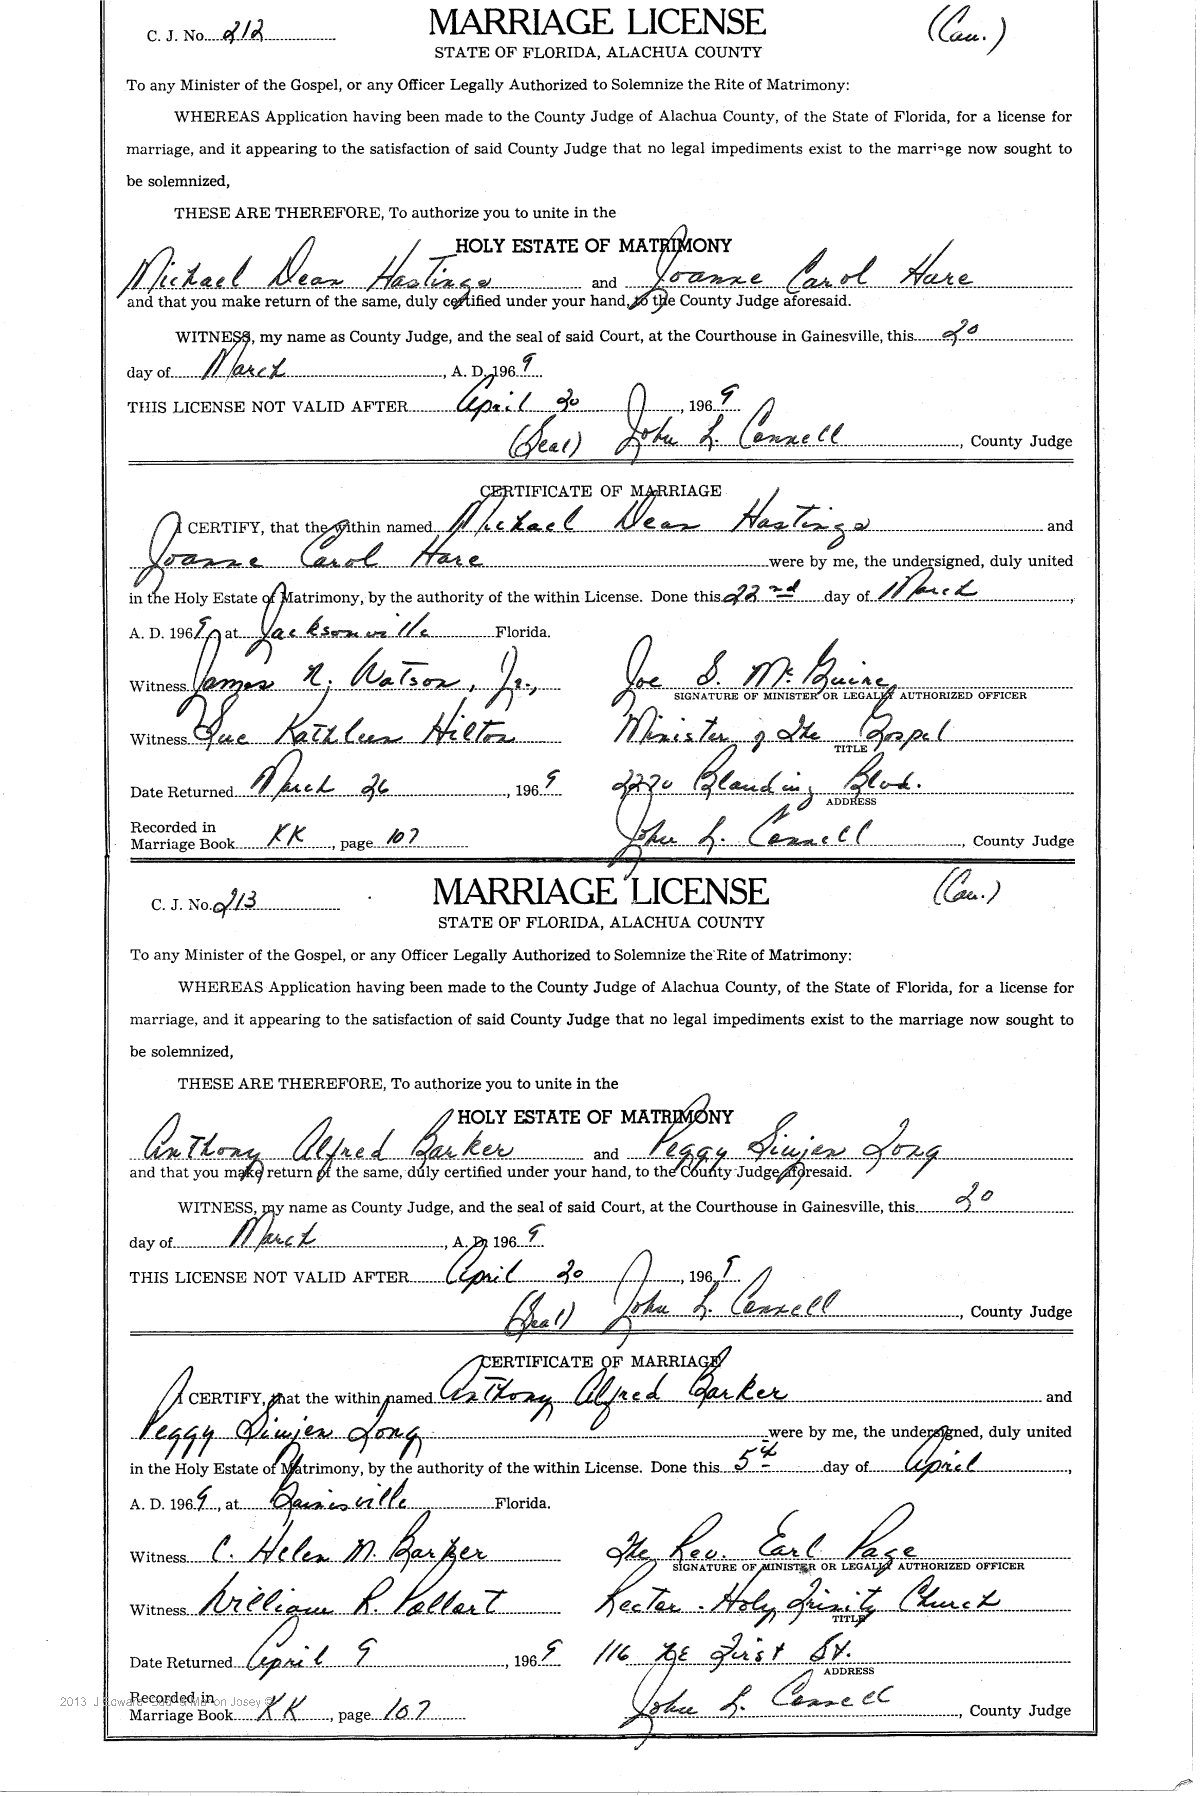 C. J. No. 212 MARRIAGE LICENSE (Cau.)
STATE OF FLORIDA, ALACHUA COUNTY
To any Minister of the Gospel, or any Officer Legally Authorized to Solemnize the Rite of Matrimony:
WHEREAS Application having been made to the County Judge of Alachua County, of the State of Florida, for a license for
marriage, and it appearing to the satisfaction of said County Judge that no legal impediments exist to the marriage now sought to
be solemnized,
THESE ARE THEREFORE, To authorize you to unite in the
HOLY ESTATE OF MATRIMONY
Michael Dean Hastings and Joanne Carol Hare
and that you make return of the same, duly certified under your hand, to the County Judge aforesaid.
WITNESS, my name as County Judge, and the seal of said Court, at the Courthouse in Gainesville, this 20
day of March, A. D. 1969
THIS LICENSE NOT VALID AFTER April 20, 1969
(Seal) John L. Connell, County Judge
CERTIFICATE OF MARRIAGE
I CERTIFY, that the within named Michael Dean Hastings and
Joanne Carol Hare were by me, the undersigned, duly united
in the Holy Estate of Matrimony, by the authority of the within License. Done this 22nd day of March,
A. D. 1969, at Jacksonville Florida.
Witness James N. Watson, Jr., Joe S. McGuire
SIGNATURE OF MINISTER OR LEGALLY AUTHORIZED OFFICER
Witness Sue Kathleen Hilton Minister of The Gospel
TITLE
Date Returned March 26, 1969 2220 Blanding Blvd.
ADDRESS
Recorded in
Marriage Book KK, page 107 John L. Connell, County Judge
C. J. No. 213 MARRIAGE LICENSE (Cau.)
STATE OF FLORIDA, ALACHUA COUNTY
To any Minister of the Gospel, or any Officer Legally Authorized to Solemnize the Rite of Matrimony:
WHEREAS Application having been made to the County Judge of Alachua County, of the State of Florida, for a license for
marriage, and it appearing to the satisfaction of said County Judge that no legal impediments exist to the marriage now sought to
be solemnized,
THESE ARE THEREFORE, To authorize you to unite in the
HOLY ESTATE OF MATRIMONY
Anthony Alfred Barker and Peggy Sinjen Long
and that you make return of the same, duly certified under your hand, to the County Judge aforesaid.
WITNESS, my name as County Judge, and the seal of said Court, at the Courthouse in Gainesville, this 20
day of March, A. D. 1969
THIS LICENSE NOT VALID AFTER April 20, 1969
(Seal) John L. Connell, County Judge
CERTIFICATE OF MARRIAGE
I CERTIFY, that the within named Anthony Alfred Barker and
Peggy Sinjen Long were by me, the undersigned, duly united
in the Holy Estate of Matrimony, by the authority of the within License. Done this 5th day of April,
A. D. 1969, at Gainesville Florida.
Witness C. Helen M. Barker The Rev. Earl Page
SIGNATURE OF MINISTER OR LEGALLY AUTHORIZED OFFICER
Witness William R. Pallart Rector - Holy Trinity Church
TITLE
Date Returned April 9, 1969 116 NE First St.
ADDRESS
2013 Josey ©
Recorded in
Marriage Book KK, page 107 John L. Connell, County Judge